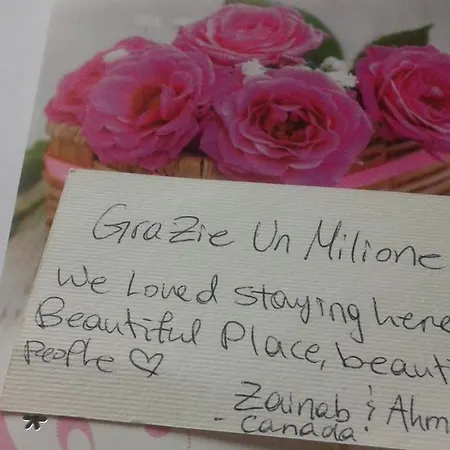 Grazie Un Milione
We Loved staying here
Beautiful Place, beaut
People ♡
Zainab & Ahm
- Canada.